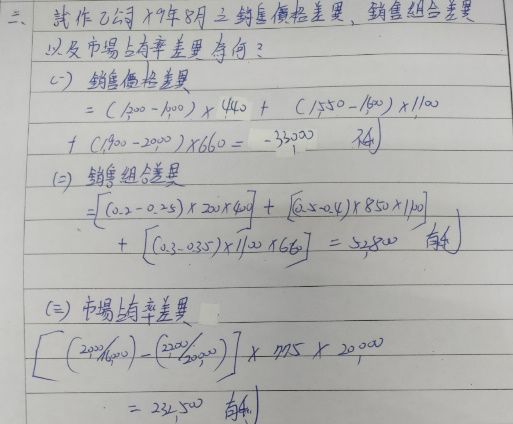 三、試作乙公司19年8月之銷售價格差異、銷售組合差異
以及市場占有率差異為何?
(一) 銷售價格差異
= (1,200-1,000) × 440 + (1,550-1,600) × 1,100
+ (1,900-2,000) × 660 = -33,000 不利
(二) 銷售組合差異
= [(0.2-0.25) × 200 × 400] + [(0.5-0.4) × 850 × 1,100]
+ [(0.3-0.35) × 1,100 × 660] = 52,800 有利
(三) 市場占有率差異
[(2,200/20,000)] × 775 × 20,000
= 232,500 有利